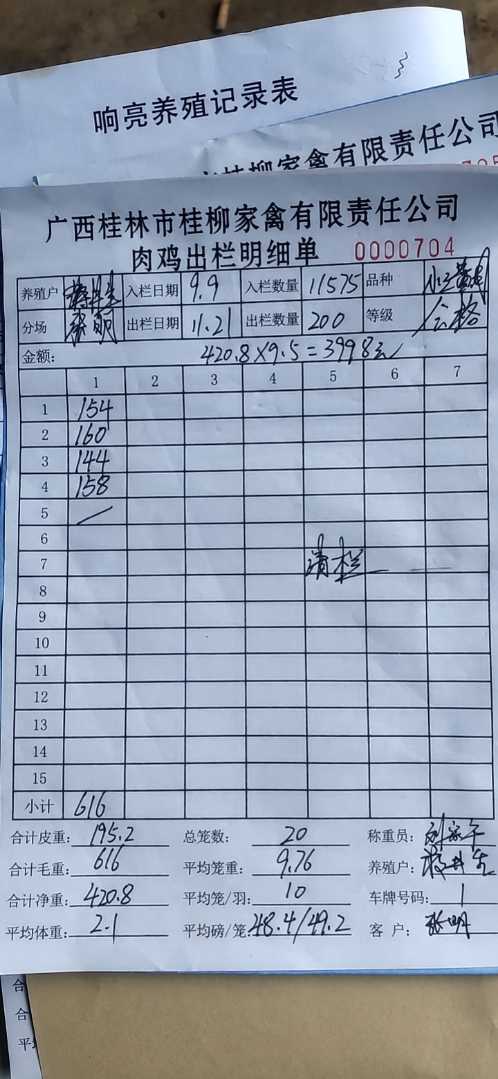 响亮养殖记录表
桂柳家禽有限责任公司
广西桂林市桂柳家禽有限责任公司
肉鸡出栏明细单 0000704
养殖户 入栏日期 9.9 入栏数量 11575 品种
分场 出栏日期 11.21 出栏数量 200 等级 合格
金额: 420.8×9.5=3998元
1 2 3 4 5 6 7
1 154
2 160
3 144
4 158
5
6
7 清栏
8
9
10
11
12
13
14
15
小计 616
合计皮重: 195.2 总笼数: 20 称重员:
合计毛重: 616 平均笼重: 9.76 养殖户:
合计净重: 420.8 平均笼/羽: 10 车牌号码: 1
平均体重: 2.1 平均磅/笼: 48.4/49.2 客户: 张明
合
合
平